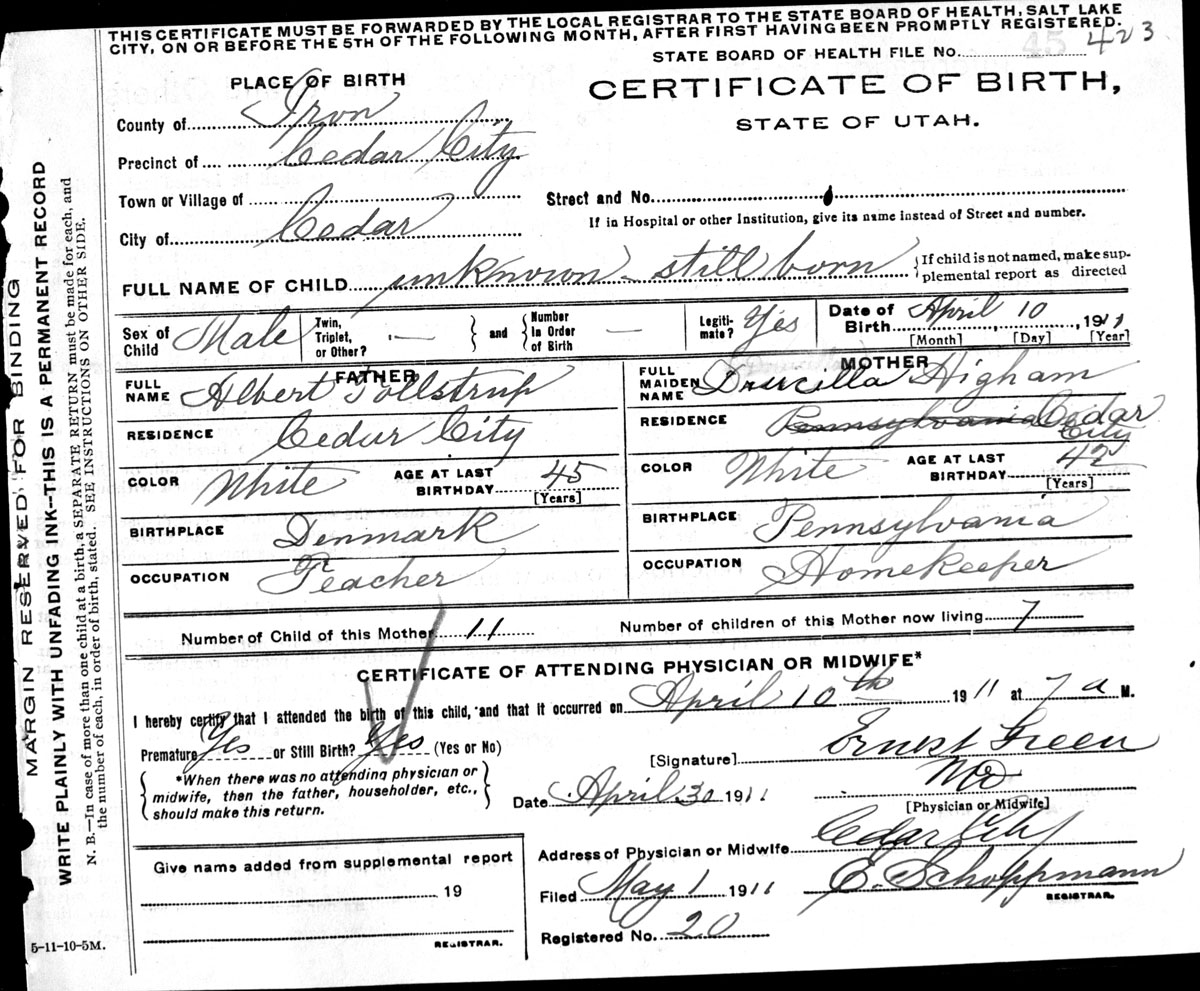 THIS CERTIFICATE MUST BE FORWARDED BY THE LOCAL REGISTRAR TO THE STATE BOARD OF HEALTH, SALT LAKE
CITY, ON OR BEFORE THE 5TH OF THE FOLLOWING MONTH, AFTER FIRST HAVING BEEN PROMPTLY REGISTERED.
STATE BOARD OF HEALTH FILE No. 45 423
PLACE OF BIRTH
CERTIFICATE OF BIRTH,
STATE OF UTAH.
County of Iron
Precinct of Cedar City
Town or Village of
Street and No.
City of Cedar
If in Hospital or other Institution, give its name instead of Street and number.
FULL NAME OF CHILD unknown - still born
{If child is not named, make sup-
plemental report as directed
Sex of Child Male
Twin, Triplet, or Other? —
and
Number in Order of Birth —
Legiti-mate? Yes
Date of Birth April 10, 1911
[Month] [Day] [Year]
FATHER
FULL NAME Albert Tollstrup
RESIDENCE Cedar City
COLOR White
AGE AT LAST BIRTHDAY 45
[Years]
BIRTHPLACE Denmark
OCCUPATION Teacher
MOTHER
FULL MAIDEN NAME Druscilla Higham
RESIDENCE Pennsylvania Cedar City
COLOR White
AGE AT LAST BIRTHDAY 42
(Years)
BIRTHPLACE Pennsylvania
OCCUPATION Homekeeper
Number of Child of this Mother 11
Number of children of this Mother now living 7
CERTIFICATE OF ATTENDING PHYSICIAN OR MIDWIFE*
I hereby certify that I attended the birth of this child, and that it occurred on April 10th 1911 at 7 a M.
Premature Yes or Still Birth? Yes (Yes or No)
*When there was no attending physician or
midwife, then the father, householder, etc.,
should make this return.
[Signature] Ernest Green
MD
[Physician or Midwife]
Date April 30 1911
Address of Physician or Midwife Cedar City
Give name added from supplemental report
19
REGISTRAR.
Filed May 1 1911
E. Schoppmann
REGISTRAR.
Registered No. 20
5-11-10-5M.
MARGIN RESERVED FOR BINDING
WRITE PLAINLY WITH UNFADING INK—THIS IS A PERMANENT RECORD
N. B.—In case of more than one child at a birth, a SEPARATE RETURN must be made for each, and
the number of each, in order of birth, stated. SEE INSTRUCTIONS ON OTHER SIDE.